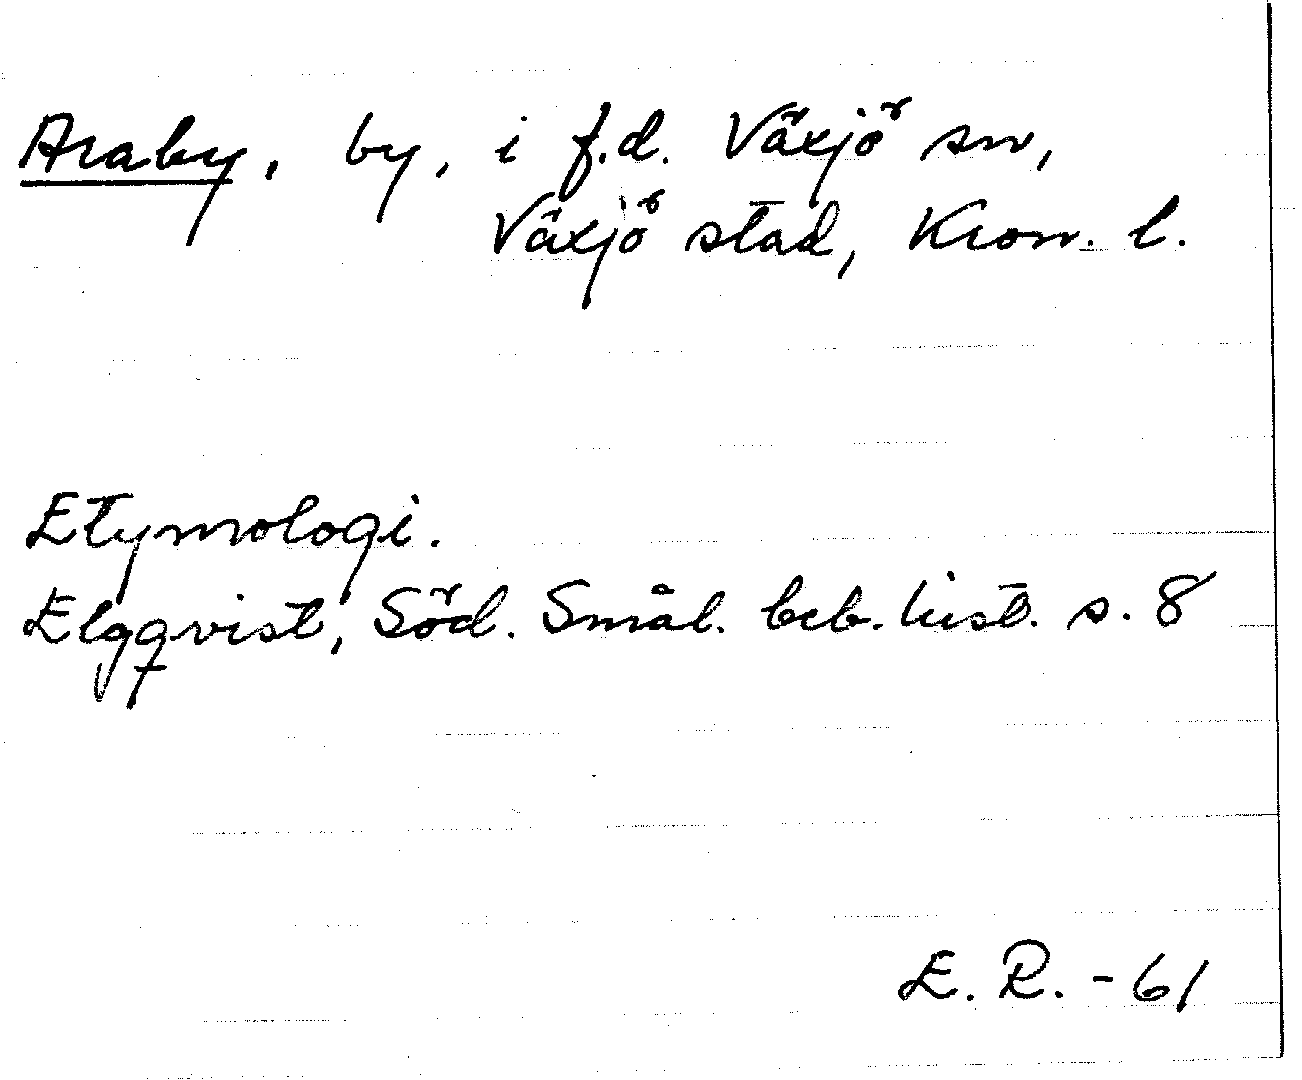 Araby, by, i f.d. Växjö sn,
Växjö stad, Kron. l.
Etymologi.
Elgqvist, Söd. Smål. beb. hist. s. 8
E. R. - 61